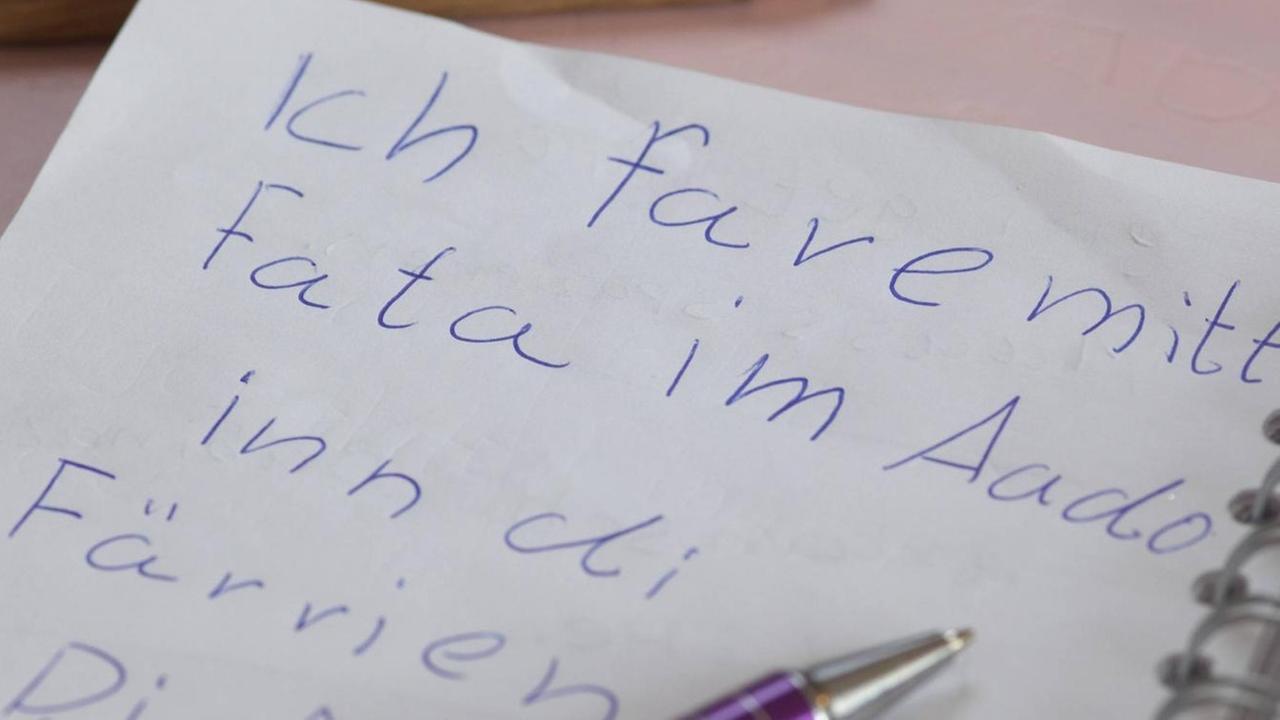 Ich fare mitt
Fata im Aado
inn di
Färrien
Di